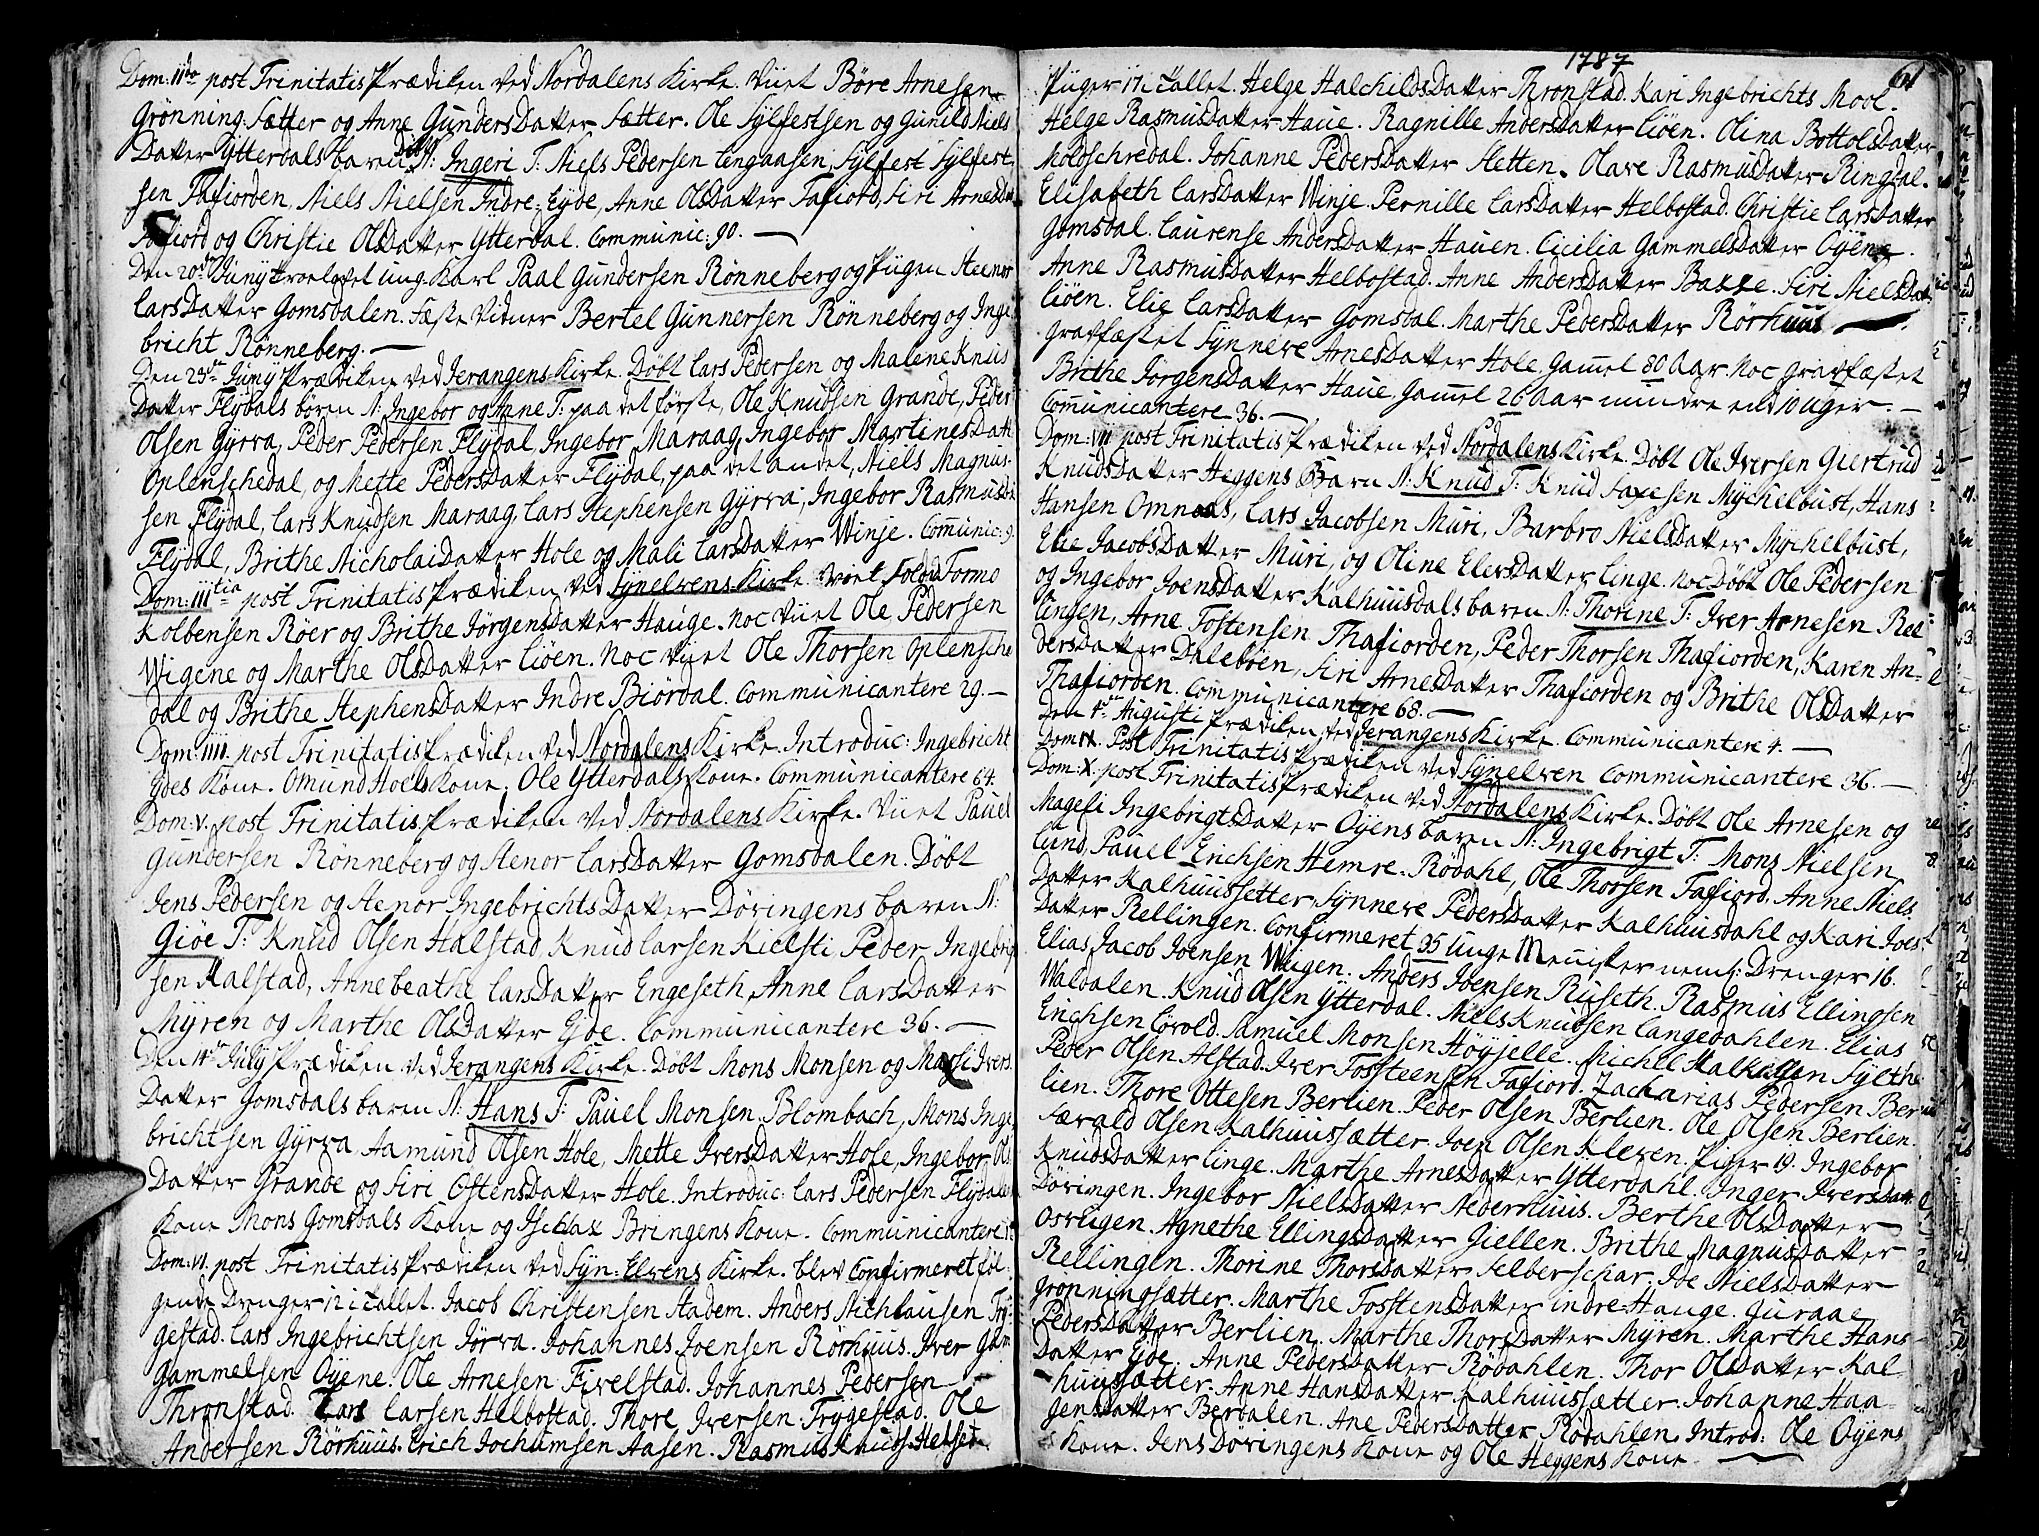 Dom: IIdo post Trinitatis Prædiken ved Nordalens Kirke. Viiet Børe Arnesen
Grønning Sætter og Anne GundersDatter Sætter. Ole Sylfestsen og Gunild Niels
Datter Ytterdals barn N: Ingeri T: Niels Pedersen Lingaasen, Sylfest Sylfest-
sen Tafiorden, Niels Nielsen Indre-Eyde, Anne OlsDatter Tafiord, Siri ArnesDr
Tafiord og Christie OlsDatter Ytterdal. Communic: 90.
Den 20de Juny trolovet ung Karl Paal Gundersen Rønneberg og Pigen Steenor
LarsDatter Gomsdalen. Fæste Vidner Bertel Gunnersen Rønneberg og Inge
bricht Rønneberg.
Den 23de Juny Prædiken ved Jerangens Kirke. Døbt Lars Pedersen og Malene Knus
Datter Flydals børen N: Ingebor og Anne T: paa det første, Ole Knudsen Grande, Peder
Olsen Gyrva, Peder Pedersen Flydal, Ingebor Maraag, Ingebor MartinesDatr
Oplenschedal, og Mette PedersDatter Flydal, paa det andet, Niels Magnus-
sen Flydal, Lars Knudsen Maraag, Lars Stephensen Gyrva, Ingebor Rasmusdr
Flydal, Brithe NicholaiDatter Hole og Mali LarsDatter Winje. Communic: 9.
Dom: IIItia post Trinitatis Prædiken ved Synelvens Kirke. Viiet Tormo
Kolbensen Røer og Brithe JørgensDatter Hauge. Noc Viiet Ole Pedersen
Wigene og Marthe OlsDatter Liøen. Noc viiet Ole Thorsen Oplensche
dal og Brithe StephensDatter Indre Biørdal. Communicantere 29.
Dom: IIII. post Trinitatis Prædiken ved Nordalens Kirke. Introduc: Ingebricht
Ydes Kone. Omund Hoels Kone. Ole Ytterdals Kone. Communicantere 64.
Dom: V. post Trinitatis Prædiken ved Nordalens Kirke. Viiet Pauel
Gundersen Rønneberg og Stenor LarsDatter Gomsdalen. Døbt
Jens Pedersen og Stenor IngebrichtsDatter Døvingens barn N:
Giøe T: Knud Olsen Halstad, Knud Larsen Kielsti, Peder Ingebrig
sen Halstad, Anne beathe LarsDatter Engeseth, Anne LarsDatter
Myren og Marthe OlsDatter Eide. Communicantere 36.
Den 11te July Prædiken ved Jerangens Kirke. Døbt Mons Monsen og Massi Ivers
Datter Gomsdals barn N: Hans T: Pauel Monsen Blombach, Mons Inge
brichtsen Gyrva, Aamund Olsen Hole, Mette IversDatter Hole, Ingebor Ols
Datter Grande og Siri OstensDatter Hole. Introduc: Lars Pedersen Flydals
Kone Mons Gomsdals Kone og Bringens Kone. Communicantere
Dom: VI. post Trinitatis Prædiken ved Syn:Elvens Kirke. blev Confirmeret føl-
gende Drenger 12 i tallet. Jacob Christensen Stadem. Anders Nichlausen Try-
gestad. Lars Ingebrichtsen Jørva. Johannes Joensen Rørhuus. Iver Gam
Gammelsen Øyene. Ole Arnesen Fivelstad. Johannes Pedersen
Thronstad. Lars Larsen Helbostad. Thore Iversen Trygestad. Ole
Andersen Rørhuus. Erich Jochumsen Aasen. Rasmus Knuds: Helset
1787
61
Piiger 17 i tallet. Helge HalchildsDatter Thronstad. Kari Ingebrichts Mool.
Helge Rasmusdatter Haue. Ragnille Andersdatter Liøen. Olina BottolsDatter
Moldschredal. Johanne Pedersdatter Sletten. Olave RasmusDatter Ringdal.
Elisabeth Larsdatter Winje. Pernille Larsdatter Helbostad. Christie Larsdatter
Gomsdal. Laurense Andersdatter Hauen. Cicilia Gammelsdatter Øyene.
Anne Rasmusdatter Helbostad. Anne Andersdatter Bakke. Siri NielsDatr
Liøen. Elie Larsdatter Gomsdal. Marthe Pedersdatter Rørhuus.
Gravfæstet Synneve Arnesdatter Hole, Gamel 80 Aar. Noc gravfæstet
Brithe Jørgensdatter Haue, gamel 26 Aar mindre end 10 Uger.
Communicantere 36.
Dom: VII post Trinitatis Prædiken ved Nordalens Kirke. Døbt Ole Iversen Giertrud
Knudsdatter Heggens Barn N: Knud T: Knud Saxesen Mychelbust, Hans
Hansen Omnaas, Lars Jacobsen Muri, Barbro Nielsdatter Mychelbust,
Elie Jacobsdatter Muri, og Oline Elersdatter Linge. noc Døbt Ole Pedersen
og Ingebor Joensdatter Kalhuusdals barn N: Thorine T: Iver Arnesen Rel
lingen, Arne Tostensen Thafiorden, Peder Thorsen Thafiorden, Karen An-
dersdatter Dalebøen, Siri Arnesdatter Thafiorden og Brithe OlsDatter
Thafiorden. Communicantere 68.
Den 1te Augusti Prædiken ved Jerangens Kirke. Communicantere 4.
Dom IX. Post Trinitatis Prædiken ved Synelven Communicantere 36.
Dom: X. post Trinitatis Prædiken ved Nordalens Kirke. Døbt Ole Arnesen og
Mageli IngebrigtsDatter Øyens barn N: Ingebrigt T: Mons Nielsen
Lund, Pauel Erichsen Hemre. Rødahl, Ole Thorsen Tafiord, Anne Niels
Datter Kalhuussetter, Synneve PedersDatter Kalhuusdahl og Kari Joes
Datter Rellingen. Confirmeret 35 unge Menisker neml: Drenger 16.
Elias Jacob Joensen Wiigen. Anders Joensen Ruseth. Rasmus Ellingsen
Waldalen. Knud Olsen Ytterdal. Niels Knudsen Langedahlen. Elias
Erichsen Lovold. Samuel Monsen Høyjelle. Michel Sylthe
Peder Olsen Alstad. Iver Tossteensen Tafiord. Zacharias Pedersen Ber
lien. Thore Ottesen Berlien. Peder Olsen Berlien. Ole Olsen Berlien.
Særald Olsen Kalhuussætter. Joen Olsen Kleven. Piger 19. Ingebor
Knudsdatter Linge. Marthe Arnesdatter Ytterdahl. Inger Iversdatr
Døvingen. Ingebor Nielsdatter Nederhuus. Berthe OlsDatter
Osvigen. Agnethe Ellingsdatter Giellen. Brithe Magnusdatter
Rellingen. Thorine Thorsdatter Selberschar. Ide Nielsdatter
Grønningsætter. Marthe TosstensDatter indre-Hauge. Guraae
PedersDatter Berlien. Marthe ThorsDatter Myren. Marthe Hans
Datter Eide. Anne Pedersdatter Rødahlen. Thor OlsDatter Kal
huussætter. Anne Hansdatter Kalhuussætter. Johanne Haa-
gensdatter Berdalen. Ane Pedersdatter Rødahlen. Introd: Ole Øyens
Kone. Jens Døvingens Kone og Ole Heggens Kone